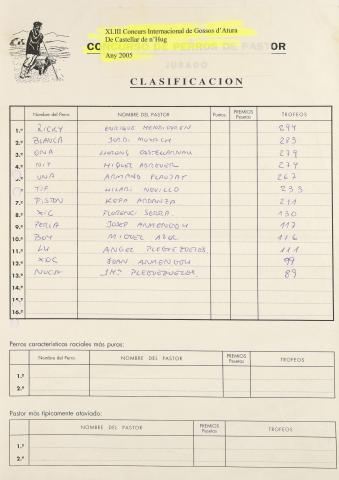 XLIII Concurs Internacional de Gossos d'Atura
De Castellar de n'Hug
CONCURSO DE PERROS DE PASTOR
Any 2005
JURADO
CLASIFICACION
Nombre del Perro NOMBRE DEL PASTOR Puntos PREMIOS Pesetas TROFEOS
1.º RICKY ENRIQUE 294
2.º BLANCA JORDI 283
3.º ONA 279
4.º NIT MIQUEL 274
5.º UNA ARMAND FLAUJAT 267
6.º TIF HILARI NOVILLO 233
7.º PISTON KEPA 211
8.º XIC FLORENCI SERRA 130
9.º PERLA JOSEP ARMENGOU 117
10.º BOY MIGUEL 116
11.º LU ANGEL PLEGUEZUELOS 111
12.º XOC JOAN ARMENGOU 99
13.º NUCA JMª PLEGUEZUELOS 89
14.º
15.º
16.º
Perros características raciales más puras:
Nombre del Perro NOMBRE DEL PASTOR PREMIOS Pesetas TROFEOS
1.º
2.º
Pastor más típicamente ataviado:
NOMBRE DEL PASTOR PREMIOS Pesetas TROFEOS
1.º
2.º